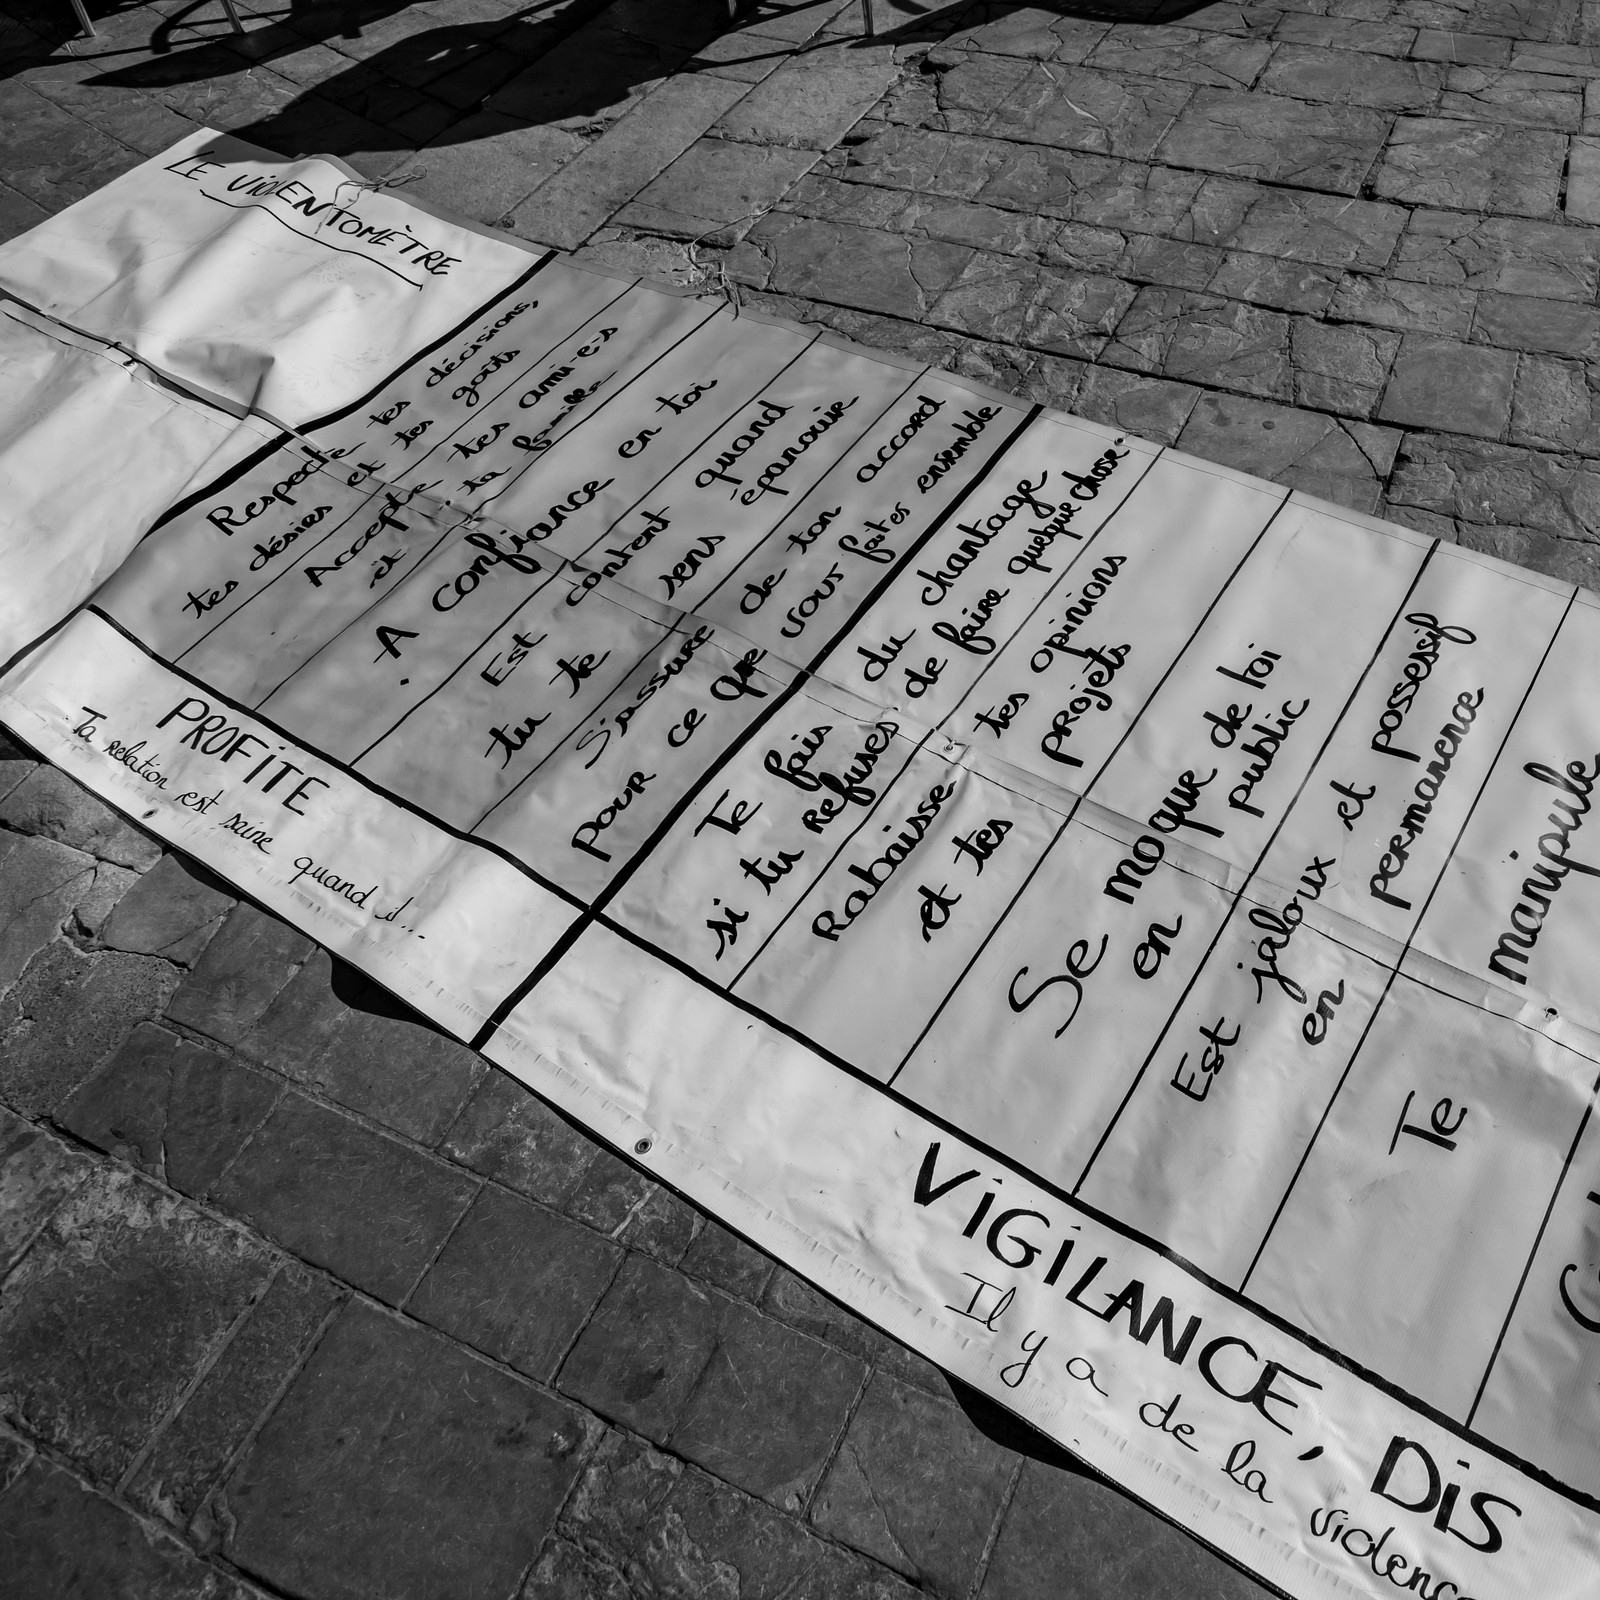 LE VIOLENTOMÈTRE
Respecte tes décisions,
tes désirs et tes goûts
Accepte tes ami-e-s
et ta famille
A confiance en toi
Est content quand
tu te sens épanouie
S'assure de ton accord
POUR ce que vous faites ensemble
PROFITE
Ta relation est saine quand il...
Te fais du chantage
si tu refuses de faire quelque chose
Rabaisse tes opinions
et tes projets
Se moque de toi
en public
Est jaloux et possessif
en permanence
Te manipule
VIGILANCE, DIS
Il y a de la violence